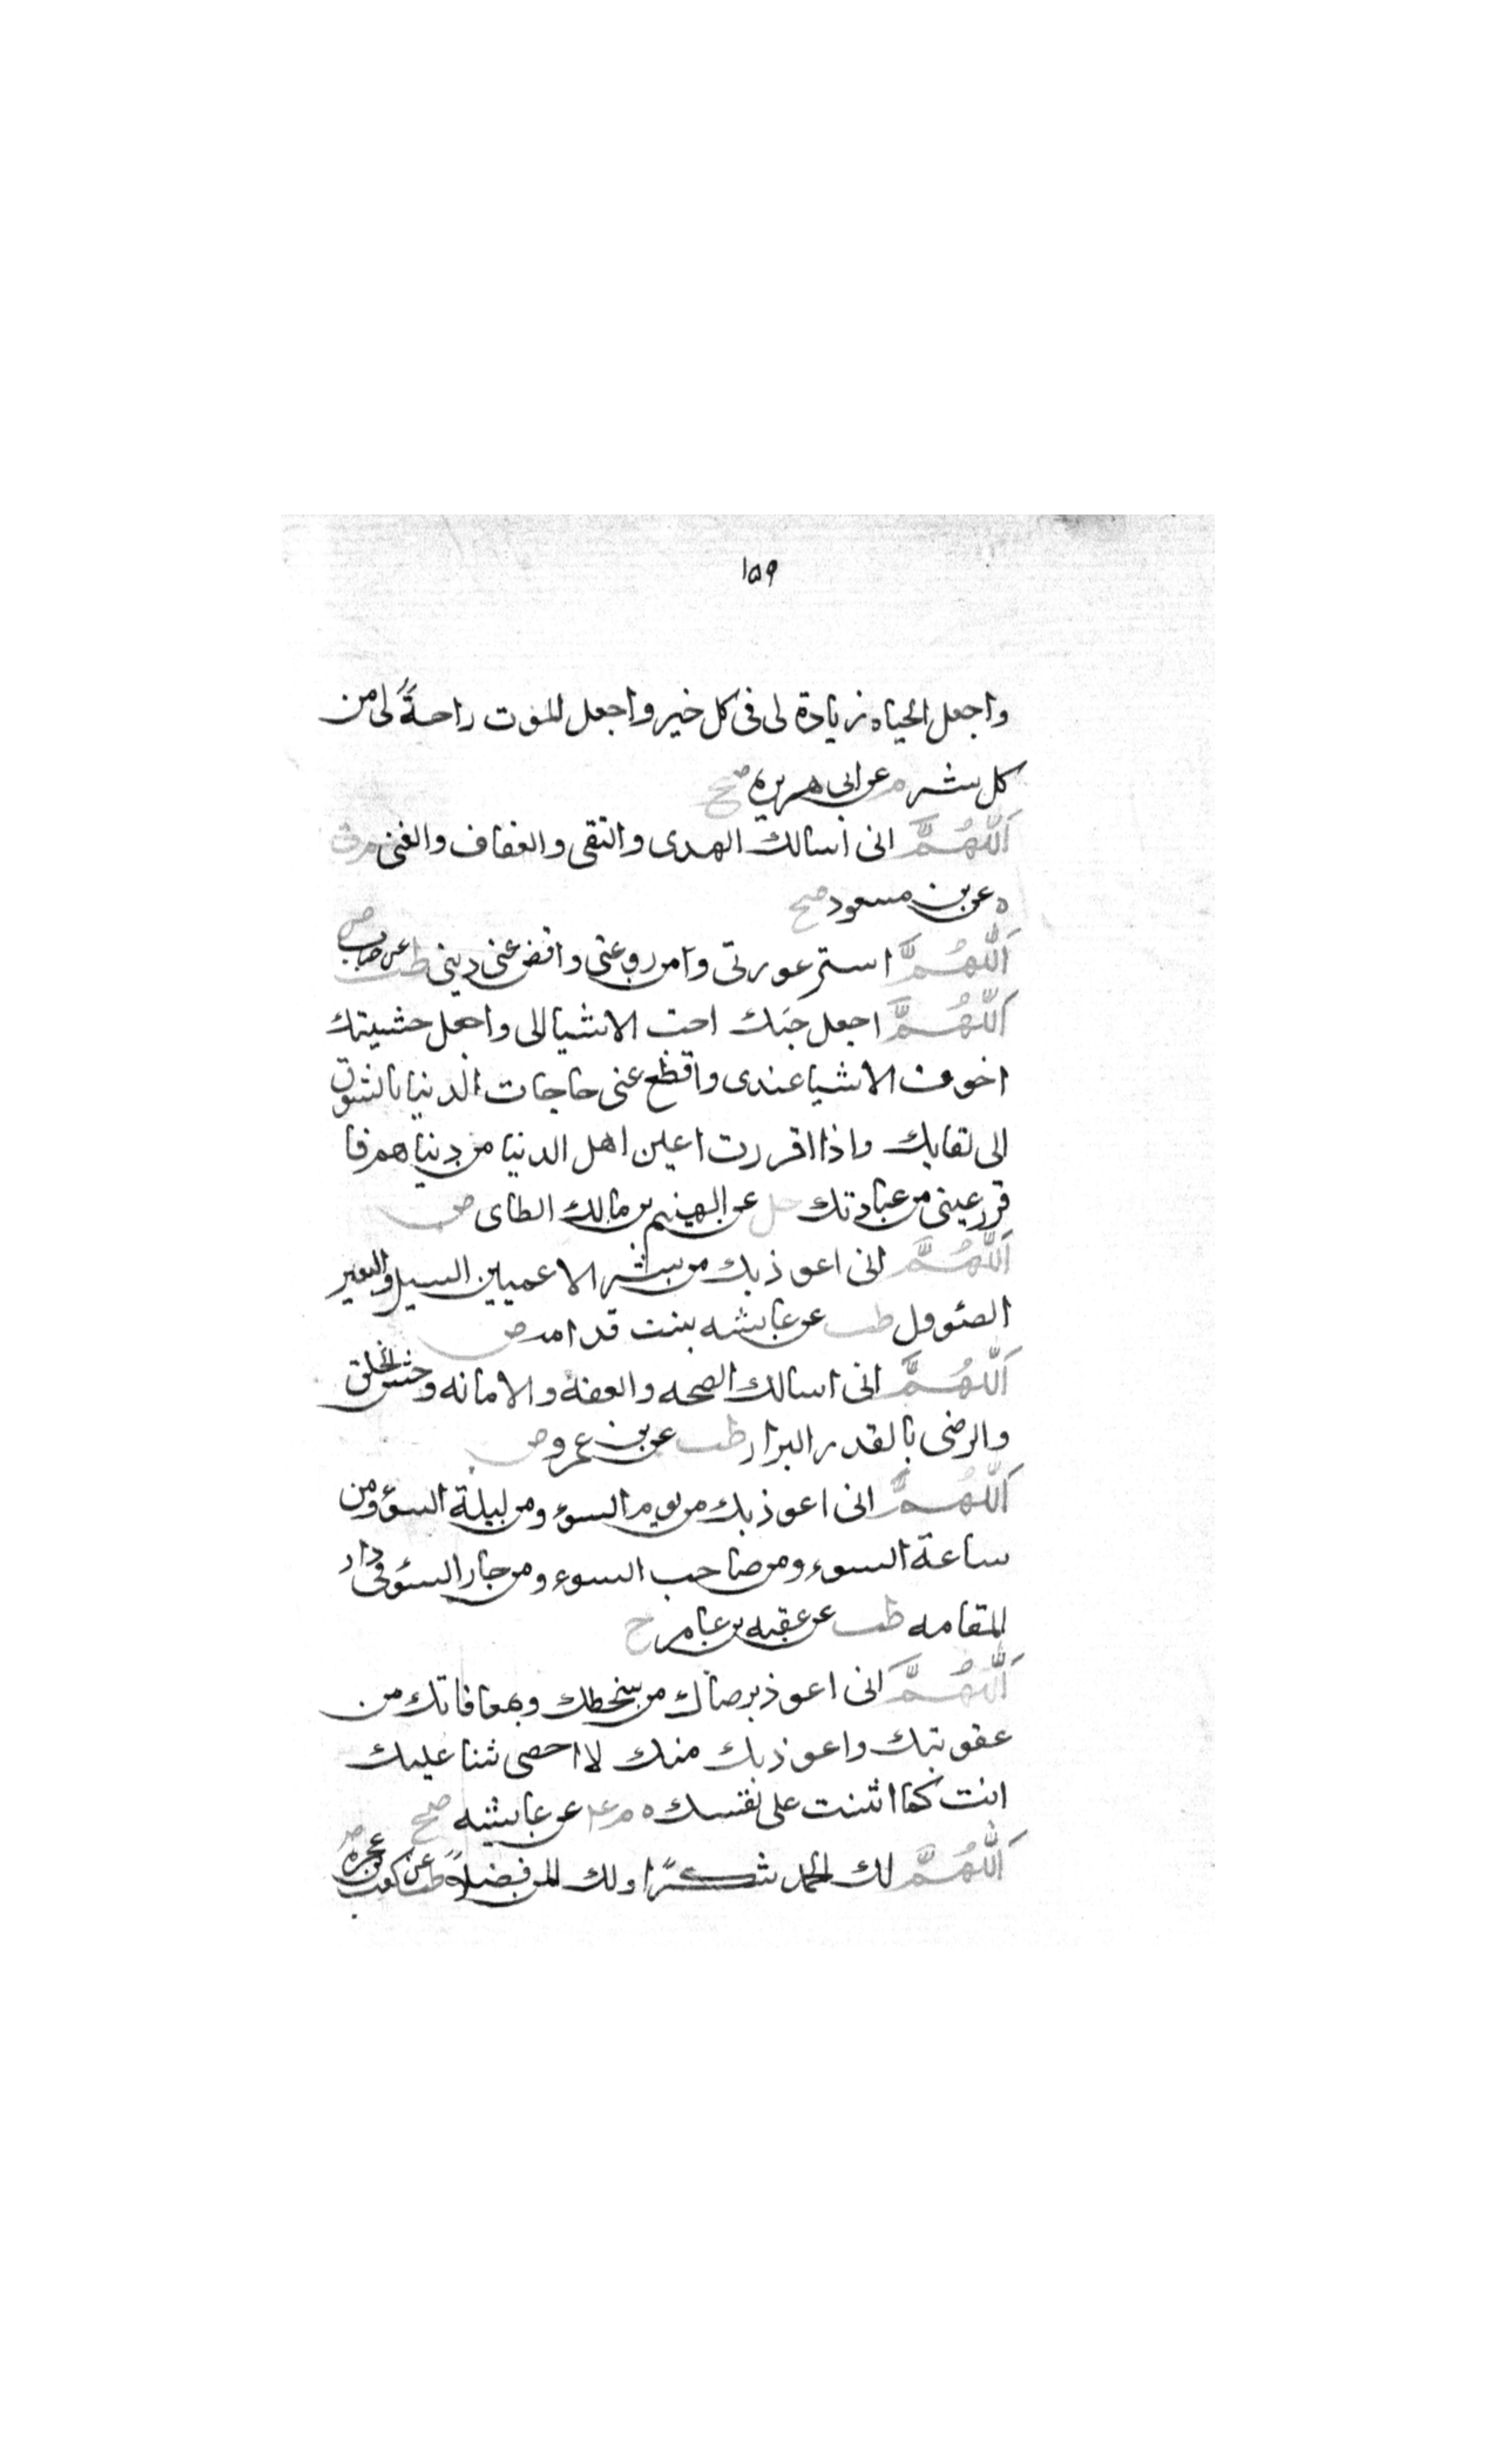 ١٥٩
واجعل الحياه زيادة لى فى كل خير واجعل الموت راحةً لى من
كل شر م عن ابى هريره صح
اَللّٰهُمَّ انى اسالك الهدى والتقى والعفاف والغنى م ت
ه عن بن مسعود صح
اَللّٰهُمَّ استر عورتى وامن روعتى واقض عنى دينى طب عن خباب
اَللّٰهُمَّ اجعل حبك احب الاشيا الى واجعل خشيتك
اخوف الاشيا عندى واقطع عنى حاجات الدنيا بالشوق
الى لقايك واذا اقررت اعين اهل الدنيا من دنياهم فا
قرر عينى من عبادتك حل عن الهيثم بن مالك الطاى ض
اَللّٰهُمَّ انى اعوذ بك من شر الاعميين السيل والبعير
الصئوول طب عن عايشه بنت قدامه ض
اَللّٰهُمَّ انى اسالك الصحه والعفة والامانه وحسن الخلق
والرضى بالقدر البزار طب عن بن عمرو ض
اَللّٰهُمَّ انى اعوذ بك من يوم السوء ومن ليلة السوء ومن
ساعة السوء ومن صاحب السوء ومن جار السوء فى دار
المقامه طب عن عقبه بن عامر ح
اَللّٰهُمَّ انى اعوذ برضاك من سخطك وبمعافاتك من
عقوبتك واعوذ بك منك لا احصى ثنا عليك
انت كما اثنيت على نفسك م عه عن عايشه صح
اَللّٰهُمَّ لك الحمد شكرًا ولك المن فضلاً طب عن كعب بن عجره ض